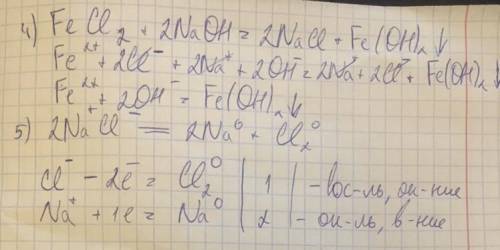 4) FeCl₂ + 2NaOH = 2NaCl + Fe(OH)₂↓
Fe²⁺ + 2Cl⁻ + 2Na⁺ + 2OH⁻ = 2Na⁺ + 2Cl⁻ + Fe(OH)₂↓
Fe²⁺ + 2OH⁻ = Fe(OH)₂↓
5) 2Na⁺Cl⁻ = 2Na⁰ + Cl₂⁰
Cl⁻ - 2e⁻ = Cl₂⁰ | 1 | - вос-ль, ок-ние
Na⁺ + 1e = Na⁰ | 2 - ок-ль, в-ние